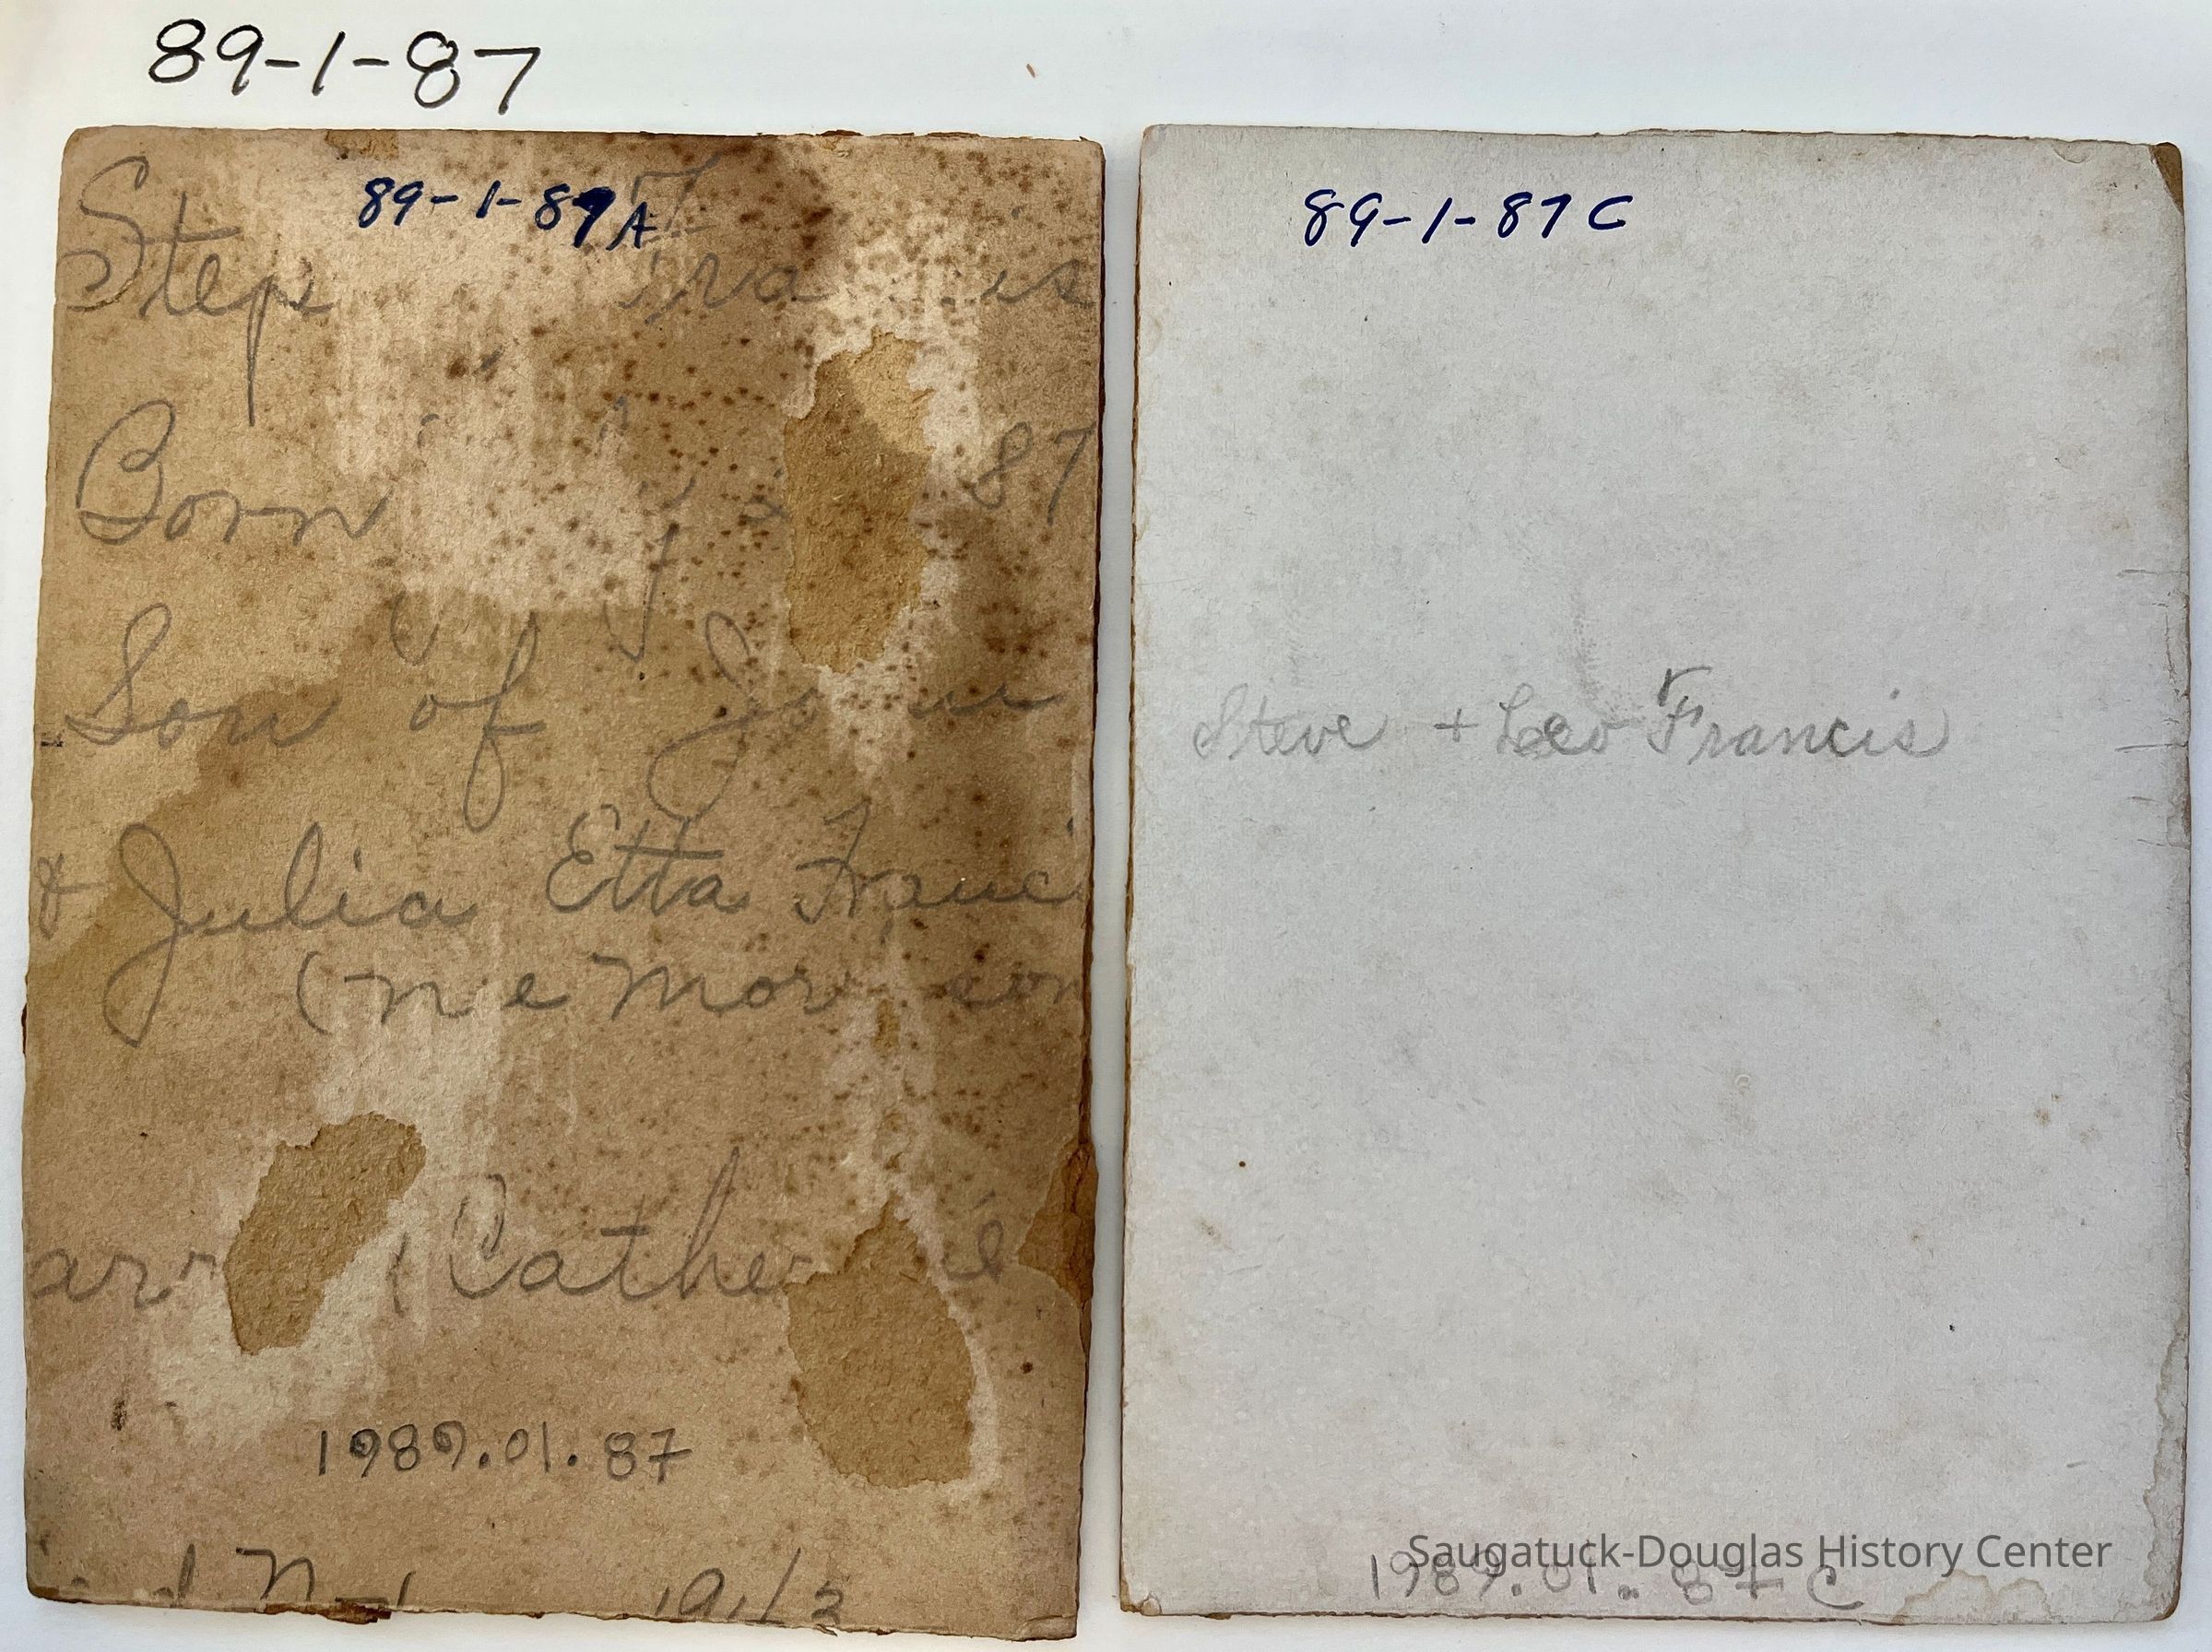 89-1-87
89-1-87A
Step Fra is
Born 87
Son of John
& Julia Etta Franci
(ne e Mor ison
arr Cather e
1989.01.87
19
89-1-87C
Steve + Leo Francis
1989.01.87C
Saugatuck-Douglas History Center